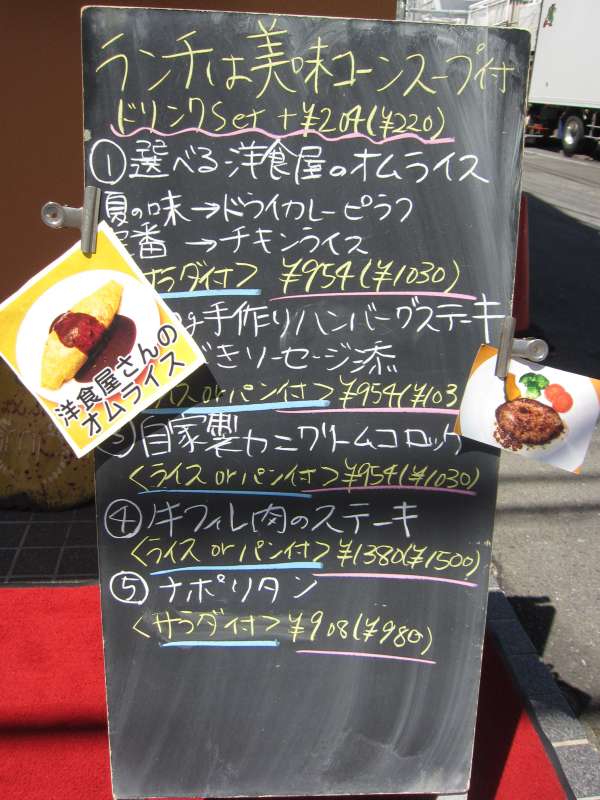 ランチは美味コーンスープ付
ドリンクSet +¥204(¥220)
①選べる洋食屋のオムライス
夏の味→ドライカレーピラフ
定番 →チキンライス
サラダ付> ¥954(¥1030)
手作りハンバーグステーキ
きソーセージ添
ライス orパン付> ¥954(¥103
③自家製カニクリームコロッケ
<ライス orパン付> ¥954(¥1030)
④牛フィレ肉のステーキ
<ライス orパン付> ¥1380(¥1500)
⑤ナポリタン
<サラダ付> ¥908(¥980)
洋食屋さんの
オムライス